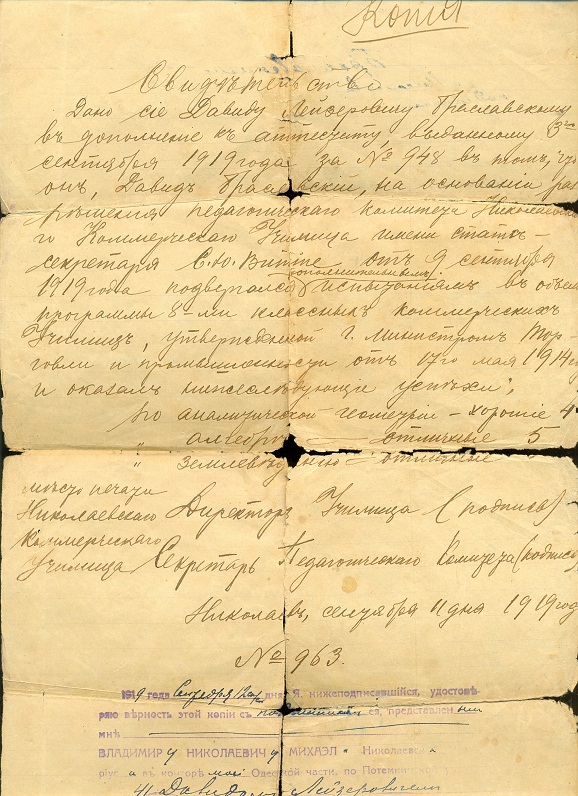 Копія
Свидѣтельство
Дано сіе Давиду Лейзеровичу Браславскому
въ дополненіе къ аттестату, выданному 3го
сентября 1919 года за № 948 въ томъ, что
онъ, Давидъ Браславскій, на основаніи раз
рѣшенія педагогическаго комитета Николаевска
го Коммерческаго Училища имени статс-
секретаря С. Ю. Витте отъ 9 сентября
дополнительнымъ
1919 года подвергался испытаніямъ въ объемѣ
программы 8-ми классныхъ коммерческихъ
Училищъ, утвержденной г. Министромъ Тор-
говли и промышленности отъ 17го мая 1914
и оказалъ нижеслѣдующіе успѣхи:
по аналитической геометріи - хорошіе 4
" алгебрѣ — отличные 5
" землевѣдѣнію — отличные
мѣсто печати
Николаевского
Коммерческаго
Училища
Директоръ Училища (подписа)
Секретарь Педагогическаго Комитета (подпись)
Николаевъ, сентября 11 дня 1919 год
№ 963.
1919 года Сентября 12 дня Я, нижеподписавшійся, удостовѣ-
ряю вѣрность этой копіи съ подлинникомъ ея, представлен
мнѣ
ВЛАДИМИРУ НИКОЛАЕВИЧУ МИХАЭЛ Николаевска
ріус въ конторѣ моей Одесской части, по Потемкинс
Давидомъ Лейзеровичемъ